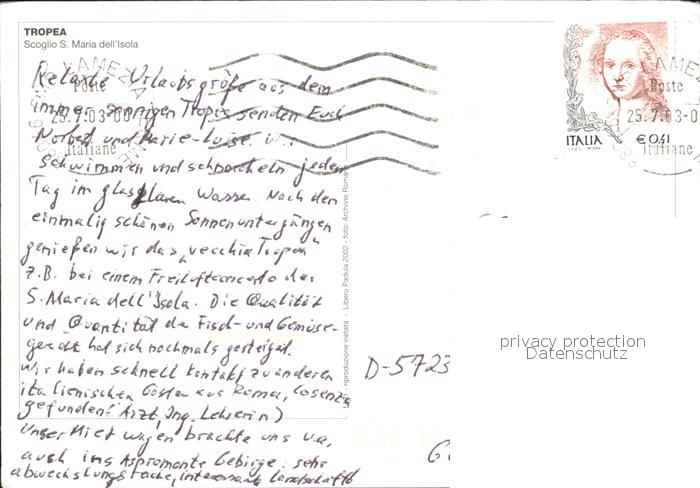 TROPEA
Scoglio S. Maria dell'Isola
Relaxte Urlaubsgrüße aus dem
immer sonnigen Tropea senden Euch
Norbert und Marie-Luise. Wir
schwimmen und schnorcheln jeden
Tag im glasklaren Wasser. Nach den
einmalig schönen Sonnenuntergängen
genießen wir das „vecchia Tropea"
z.B. bei einem Freiluftconcerto der
S. Maria dell'Isola. Die Qualität
und Quantität der Fisch- und Gemüse-
gerichte hat sich nochmals gesteigert.
Wir haben schnell Kontakt zu anderen
italienischen Gästen aus Roma, Cosenza
gefunden (Arzt, Ing. Lehrerin)
Unser Mietwagen brachte uns u.a.
auch ins Aspromonte Gebirge: sehr
abwechslungsreiche, interessante Landschaft
- riproduzione vietata - Libero Padula 2002 - foto: Archivio Roma
LAMEZIA
Poste
25.7.03-0
Italiane
ITALIA
€ 0,41
LAMEZ
Poste
25.7.03-0
Italiane
D-5723
G
privacy protection
Datenschutz